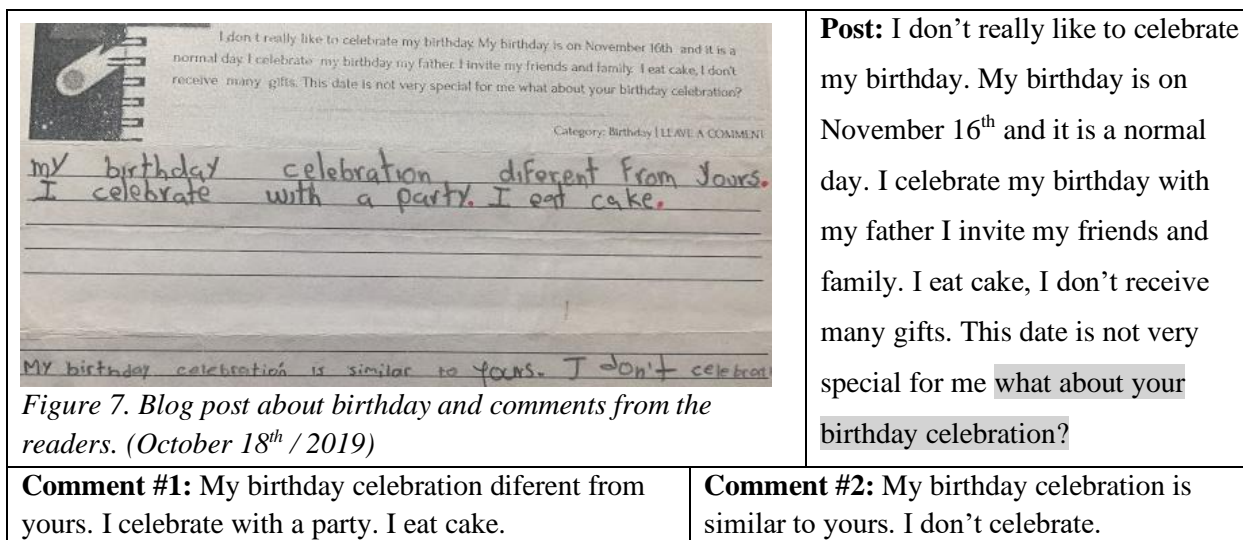 I don t really like to celebrate my birthday My birthday is on November 16th and it is a
normal day I celebrate my birthday my father I invite my friends and family I eat cake, I don't
receive many gifts. This date is not very special for me what about your birthday celebration?
Category: Birthday | LEAVE A COMMENT
my birthday celebration diferent from yours.
I celebrate with a party. I eat cake.
My birthday celebration is similar to yours. I don't celebrat
Figure 7. Blog post about birthday and comments from the
readers. (October 18th / 2019)
Post: I don’t really like to celebrate
my birthday. My birthday is on
November 16th and it is a normal
day. I celebrate my birthday with
my father I invite my friends and
family. I eat cake, I don’t receive
many gifts. This date is not very
special for me what about your
birthday celebration?
Comment #1: My birthday celebration diferent from
yours. I celebrate with a party. I eat cake.
Comment #2: My birthday celebration is
similar to yours. I don’t celebrate.